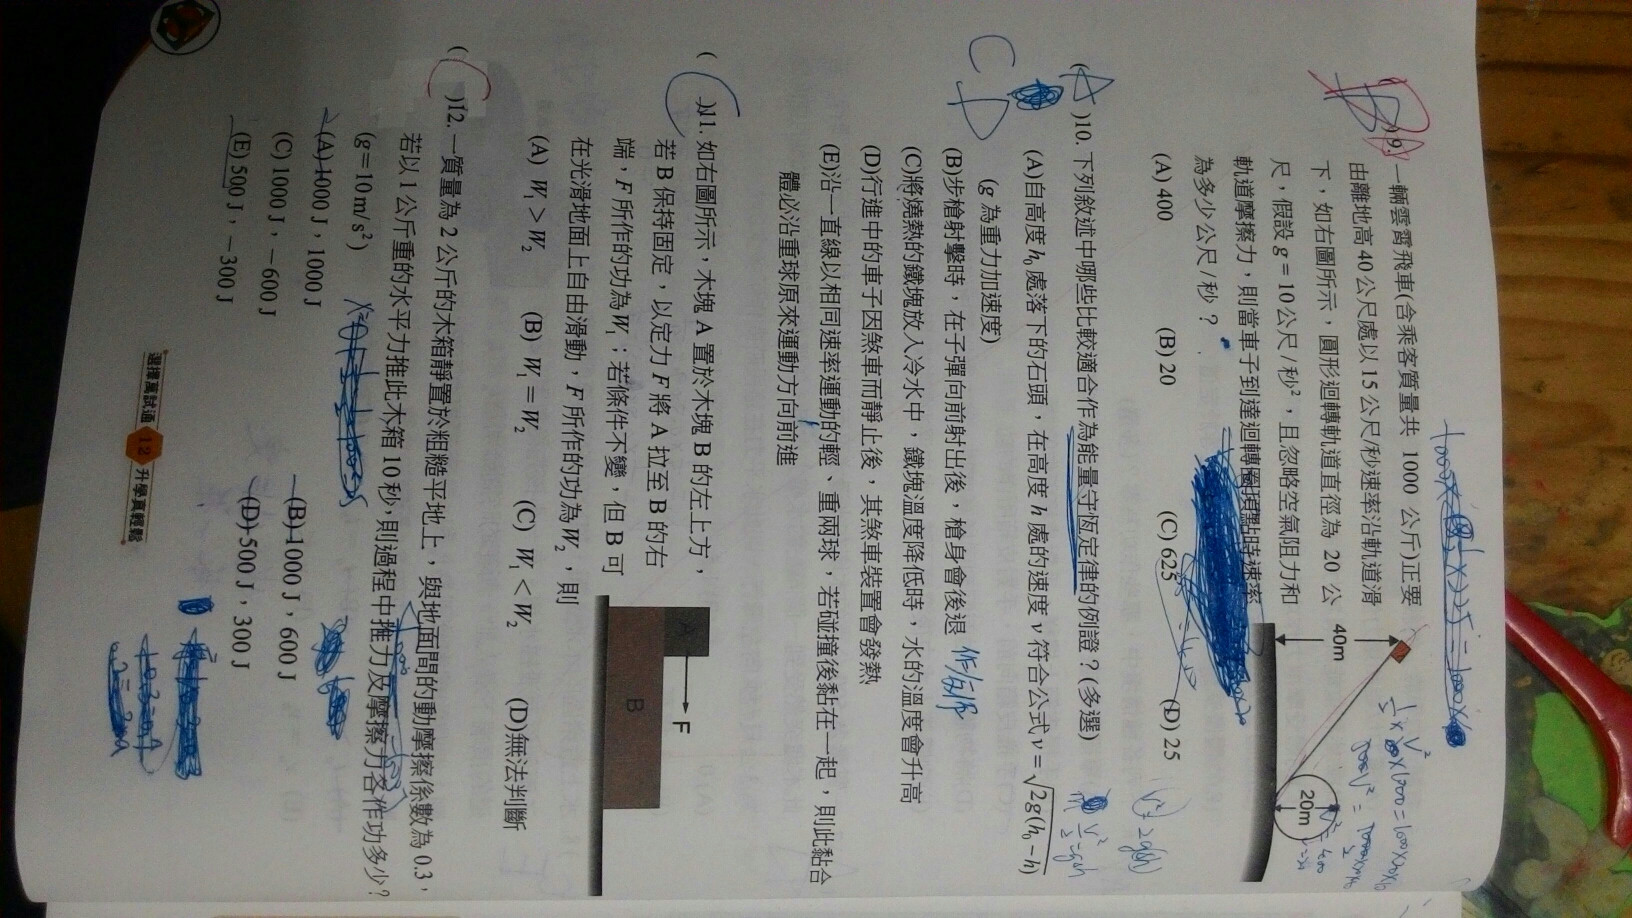 )9. 一輛雲霄飛車(含乘客質量共 1000 公斤)正要
由離地高 40 公尺處以 15 公尺/秒速率沿軌道滑
下，如右圖所示，圓形迴轉軌道直徑為 20 公
尺，假設 g = 10 公尺/秒²，且忽略空氣阻力和
軌道摩擦力，則當車子到達迴轉圈頂點時速率
為多少公尺/秒？
(A) 400 (B) 20 (C) 625 (D) 25
40m
20m
(A)10. 下列敘述中哪些比較適合作為能量守恆定律的例證？(多選)
C D
(A)自高度 h₀ 處落下的石頭，在高度 h 處的速度 v 符合公式 v = √2g(h₀ − h)
(g 為重力加速度)
(B)步槍射擊時，在子彈向前射出後，槍身會後退
(C)將燒熱的鐵塊放入冷水中，鐵塊溫度降低時，水的溫度會升高
(D)行進中的車子因煞車而靜止後，其煞車裝置會發熱
(E)沿一直線以相同速率運動的輕、重兩球，若碰撞後黏在一起，則此黏合
體必沿重球原來運動方向前進
( )11. 如右圖所示，木塊 A 置於木塊 B 的左上方，
若 B 保持固定，以定力 F 將 A 拉至 B 的右
端，F 所作的功為 W₁；若條件不變，但 B 可
在光滑地面上自由滑動，F 所作的功為 W₂，則
(A) W₁ > W₂ (B) W₁ = W₂ (C) W₁ < W₂ (D)無法判斷
A
F
B
(C)12. 一質量為 2 公斤的木箱靜置於粗糙平地上，與地面間的動摩擦係數為 0.3，
若以 1 公斤重的水平力推此木箱 10 秒，則過程中推力及摩擦力各作功多少？
(g = 10 m/s²)
(A) 1000 J，1000 J (B) 1000 J，600 J
(C) 1000 J，−600 J (D) 500 J，300 J
(E) 500 J，−300 J
選擇萬試通 12 升學真輕鬆